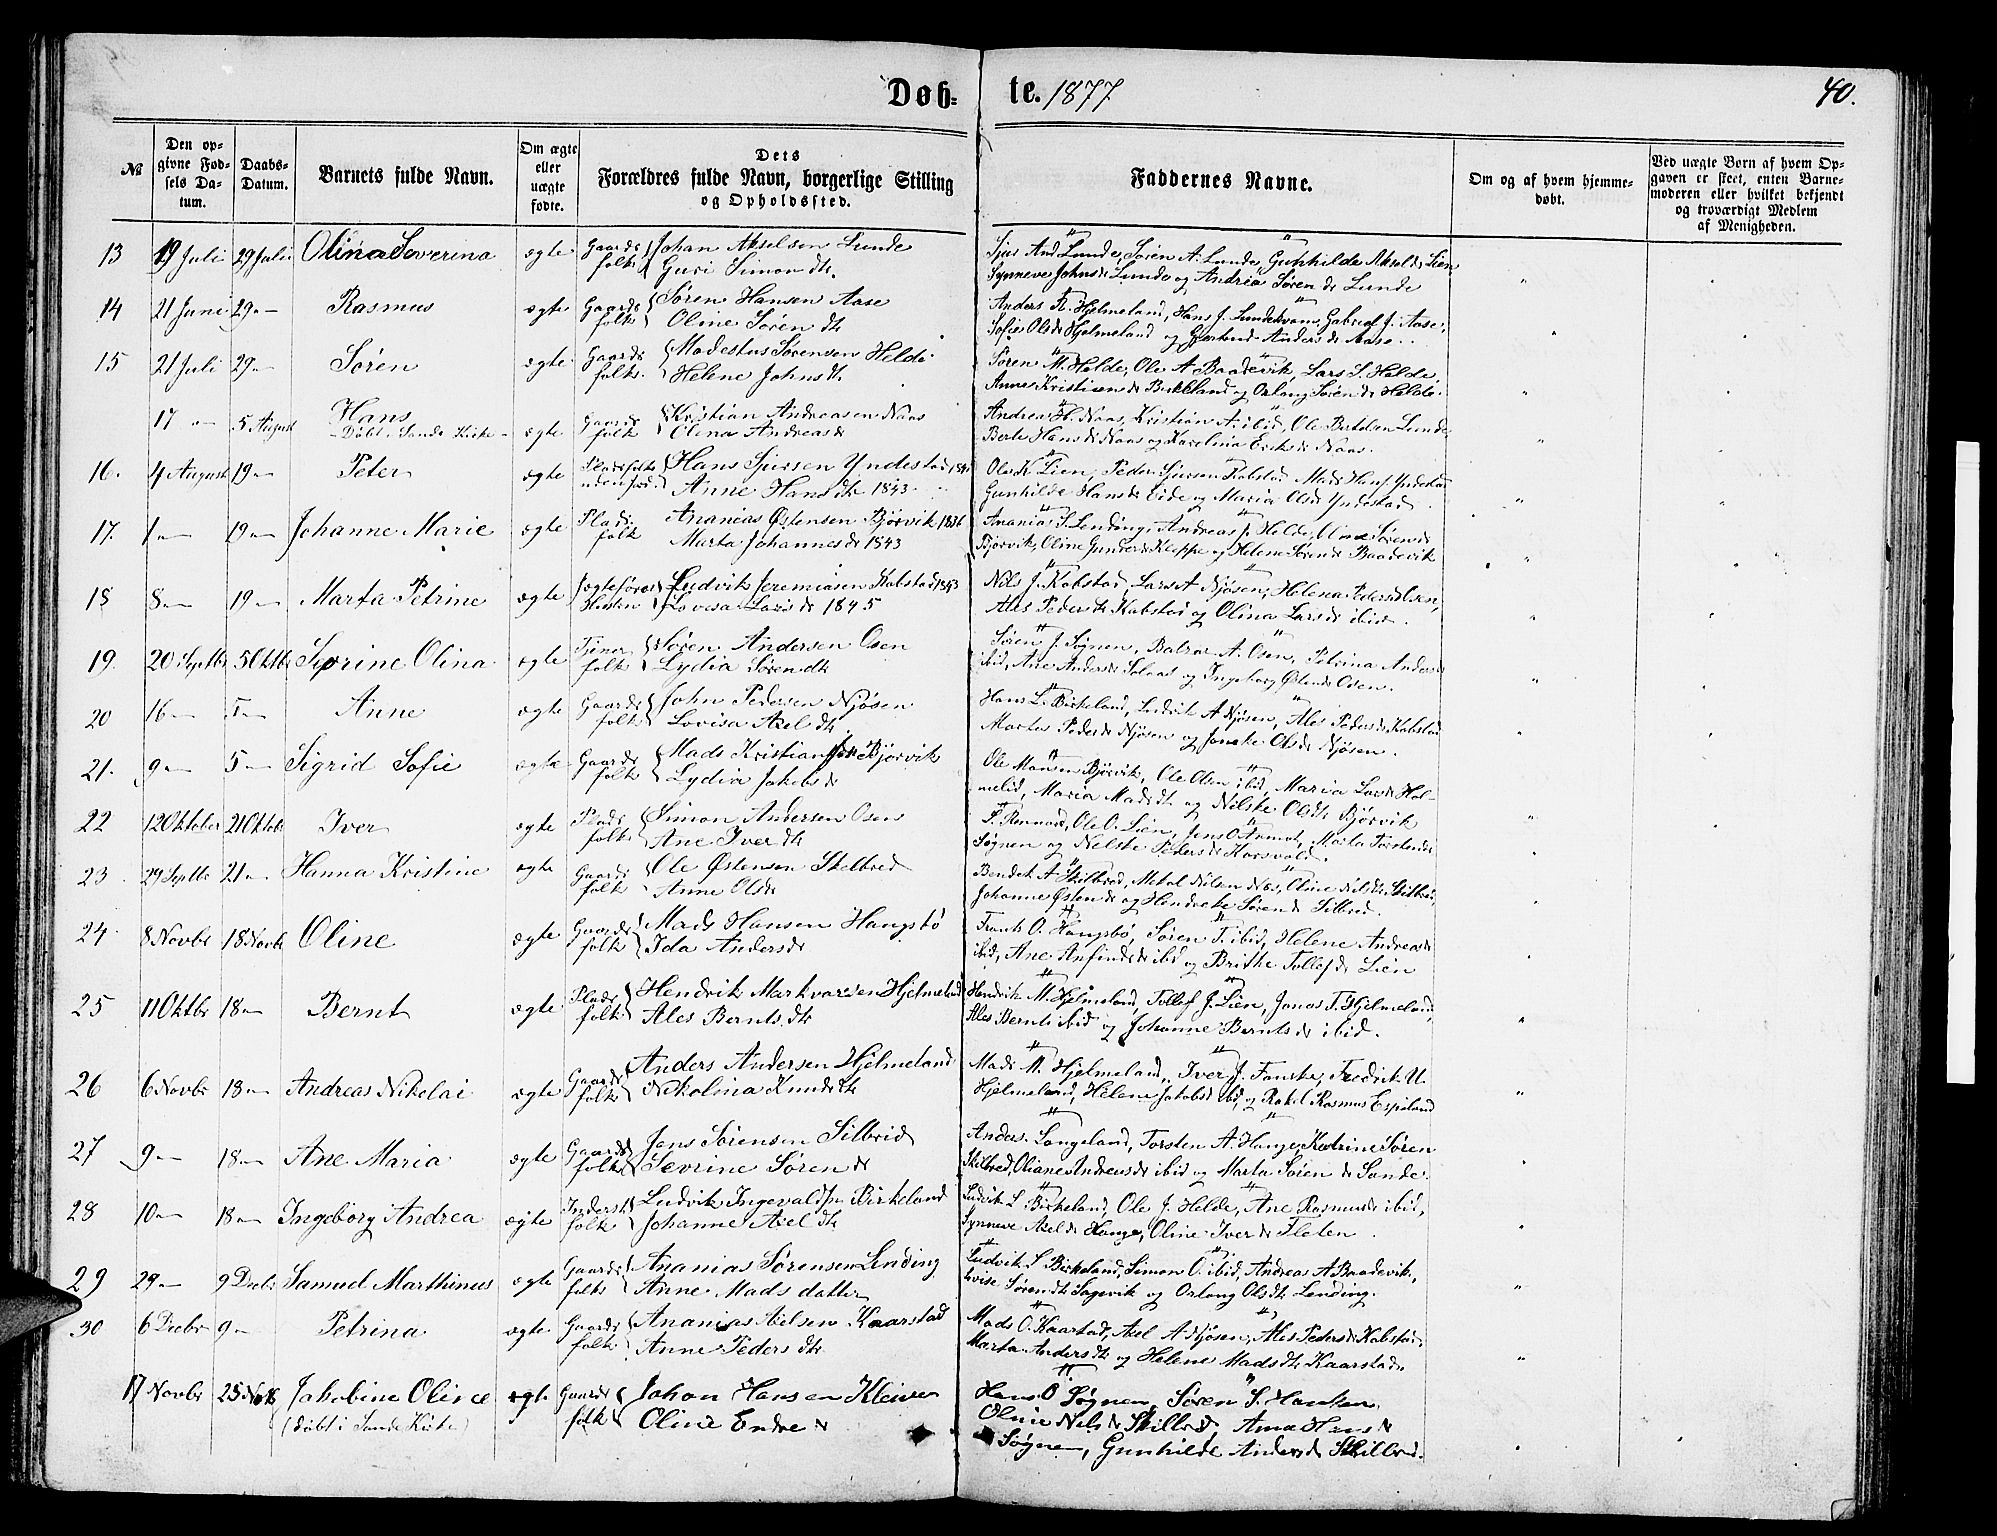 Døb= te. 1877 40.
№ Den op=givne Fød=sels Da=tum. Daabs=Datum. Barnets fulde Navn. Om ægte eller uægte fødte. Dets Forældres fulde Navn, borgerlige Stilling og Opholdssted. Faddernes Navne. Om og af hvem hjemme=døbt. Ved uægte Børn af hvem Op=gaven er skeet, enten Barne=moderen eller hvilket bekjendt og troværdigt Medlem af Menigheden.
13 19 Juli 29 Juli Olina Severina ægte Gaards folk Johan Akselsen Lunde
Guri Simon dtr.
Sjur And Lunde, Søren A. Lunde, Gunhilde Aksel dr Lien
Synneve Johns dr Lunde og Andrea Søren dr Lunde
14 21 Juni 29 " Rasmus ægte Gaards folk Søren Hansen Aase
Oline Søren dtr
Anders R. Hjelmeland, Hans J. Lundekvam, Gabriel J. Aase,
Sofie Ols dr Hjelmeland og Anders dr Aase.
15 21 Juli 29 " Søren ægte Gaards folk Modestus Sørensen Helde
Helene Johns dtr
Søren M. Helde, Ole A Baadevik, Lars S. Helde,
Anne Kristians dr Birkeland og Orlaug Søren dr Helde.
17 " 5 August Hans ægte Gaards folk Kristian Andreasen Naas
Døbt i Sande Kirke Olina Andreas dr
Andreas H. Naas, Kristian A. ibid, Ole Bertelsen Lunde,
Berte Hans dr Naas og Karolina Eriks dr Naas.
16. 4 August 19 " Peter ægte Plads folk uden Jord Hans Sjursen Yndestad
Anne Hans dtr 1843
Ole K Lien, Peder Sjursen Kobstad, Mads Hans. Yndestad
Gunhilde Hans dr Eide og Maria Ols dr Yndestad.
17. 1 " 19 " Johanne Marie ægte Plads folk Ananias Østensen Bjørvik 1836
Marta Johannes dr 1843
Ananias S. Lending, Andreas J. Helde, Oline Sørens dr
Bjørvik, Oline Gunder dr Kleppe og Helene Søren dr Baadevik
18 8 " 19 " Marta Petrine ægte Ludvik Jeremiasen Kobstad 1843
Lovesa Lars dr 1845
Nils J. Kobstad, Lars A Njøsen, Helena Peders dr Osen,
Ales Peders dtr Kobstad og Olina Lars dr ibid.
19. 20 Septbr 5 Oktbr Syrine Olina ægte Tjener folk Søren Andersen Osen
Lydia Søren dtr
Søren J. Søgnen, Balzar A. Osen, Petrina Anders dr
ibid, Ane Anders dr Solaas og Ingeborg Østens dr Osen.
20 16 " 5 " Anne ægte Gaards folk John Pedersen Njøsen
Lovisa Axel dtr
Hans L. Birkeland, Ludvik A Njøsen, Ales Peders dr Kobstad
Martas Peders dr Njøsen og Ols dr Njøsen.
21. 9 " 5 " Sigrid Sofie ægte Gaards folk Mads Kristiansen Bjørvik
Lydia Jakobs dr
Ole Monsen Bjørvik, Ole Olsen ibid, Maria Lars dr Hol-
melid, Maria Mads dtr og Nilske Ols dtr Bjørvik
22 12 Oktober 21 Oktbr Iver ægte Plads folk Simon Andersen Osen
Ane Iver dtr
Ole O. Lien, Jens O. Aamot, Marta Torstens dr
Søgnen og Nelske Peders dr Horsvold.
23 29 Septbr 21 " Hanna Kristine ægte Gaards folk Ole Østensen Skelbred
Anne Ols dr
Bendik A Skilbred, Nilsen Næs, Oline Nils dtr Skilbred,
Johanne Østen dr og Hendreke Søren dr Silbred.
24 8 Novbr 18 Novbr Oline ægte Gaards folk Mads Hansen Haugsbø
Ida Anders dr
Frants O. Haugsbø, Søren T. ibid, Helene Andreas dr
ibid, Ane Anfinds dr ibid og Britke Tollef dr Lien
25 11 Oktbr 18 " Bernt ægte Plads folk Hendrik Markvarsen Hjelmeland
Ales Bernts dtr
Hendrik M. Hjelmeland, Tollef J. Lien, Jonas T. Hjelmeland,
Ales Bernts ibid og Johanne Bernts dr ibid.
26 6 Novbr 18 " Andreas Nikolai ægte Gaards folk Anders Andersen Hjelmeland
Nikolina Knuds dtr
Mads M. Hjelmeland, Iver J. Fonske, Fredrik U.
Hjelmeland, Helene Jakobs d ibid, og Rakel Rasmus Espeland
27 9 " 18 " Ane Maria ægte Gaards folk Jens Sørensen Silbrid
Sevrine Søren dr
Anders Langeland, Torsten A. Hauge, Katrine Søren
Skilbred, Oliane Andreas dr ibid og Marta Søren dr Sande.
28 10 " 18 " Ingeborg Andrea ægte Inderst folk Ludvik Ingevaldsen Birkeland
Johanne Axel dtr
Ludvik L Birkeland, Ole J. Helde, Ane Rasmus dr ibid,
Synneve Axel dr Hauge, Oline Iver dr Fleten.
29 29 " 9 Decbr Samuel Marthinus ægte Gaards folk Ananias Sørensen Lending
Anne Mads datter
Ludvik S Birkeland, Simon O. ibid, Andreas A Baadevik,
Lovise Søren dtr Sagevik og Orlaug Ols dtr Lending.
30 6 Decbr 9 " Petrina ægte Gaards folk Ananias Axelsen Kaarstad
Anne Peders dtr
Mads O. Kaarstad, Axel A Njøsen, Ales Peders dr Kobstad,
Marta Anders dtr og Helene Mads dtr Kaarstad.
17 Novbr 25 Novbr Jakobine Olive ægte Gaards folk Johan Hansen Kleiven
(døbt i Sande Kirke) Oline Endre dr
Hans O Søgnen, Søren S.
Oline Nils dr Skilbred, Anna Hans dr
Søgnen, Gunhilde Anders dr Skilbred.